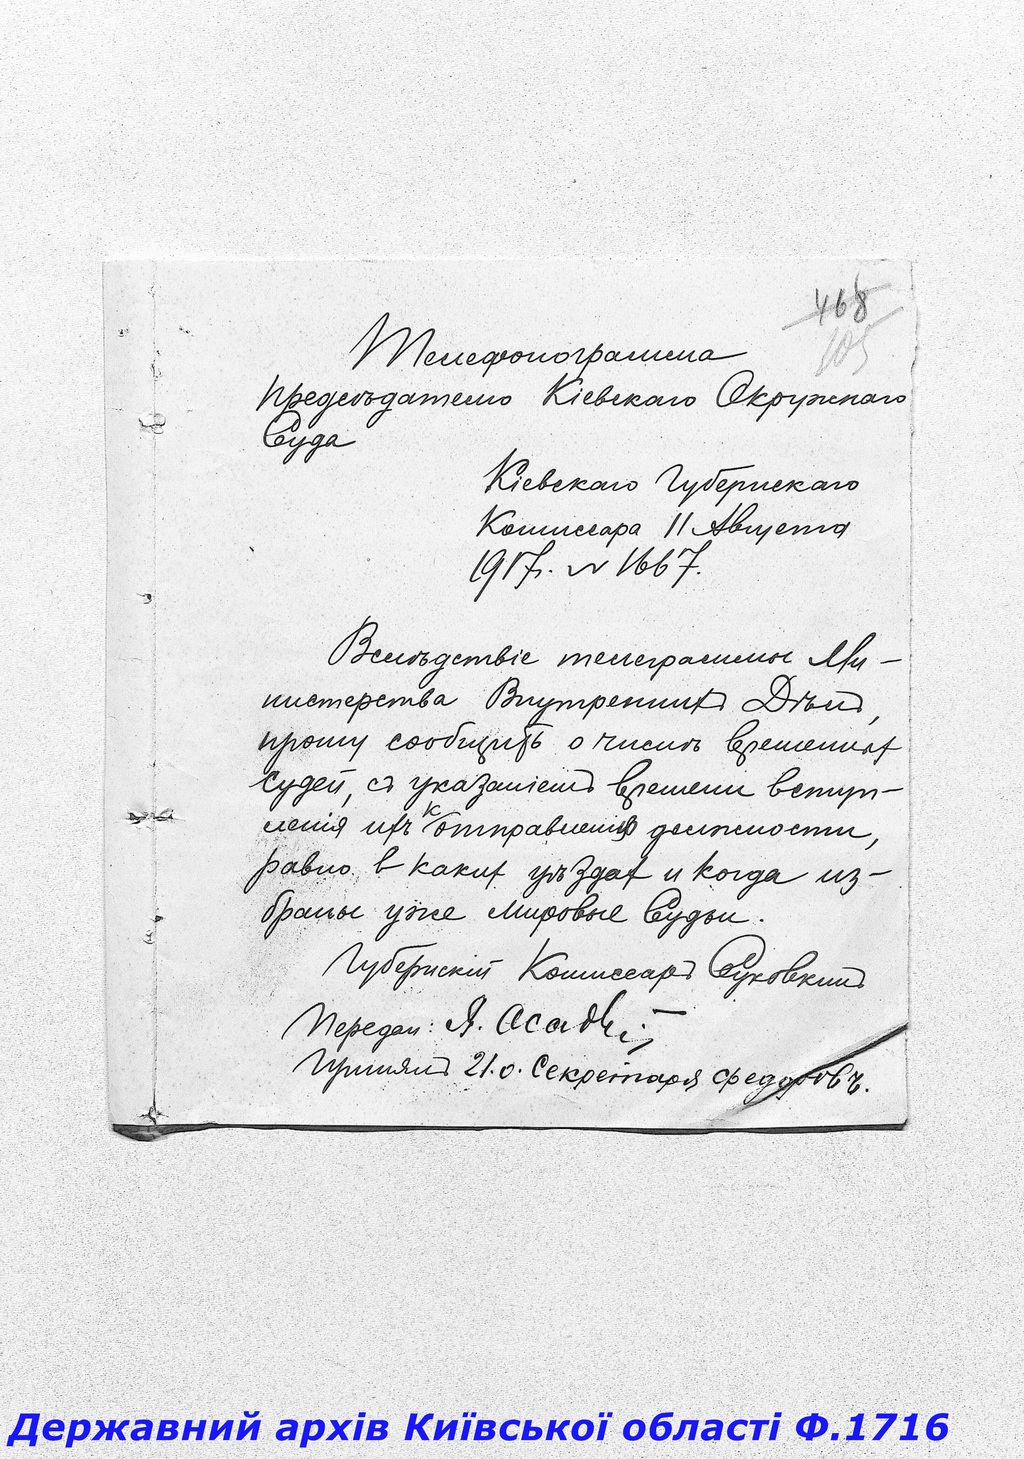 468
105
Телефонограмма
Предсѣдателю Кіевскаго Окружнаго
Суда
Кіевскаго Губернскаго
Комиссара 11 Августа
1917г. № 1667.
Вслѣдствіе телеграммы Ми-
нистерства Внутреннихъ Дѣлъ,
прошу сообщить о числѣ временныхъ
судей, съ указаніемъ времени вступ-
ленія ихъ къ отправленію должности,
равно въ какихъ уѣздахъ и когда из-
браны уже мировые Судьи.
Губернскій Комиссаръ Суковкинъ
Передал: Я.
Принялъ Секретаря Федоровъ.
Державний архів Київської області Ф.1716